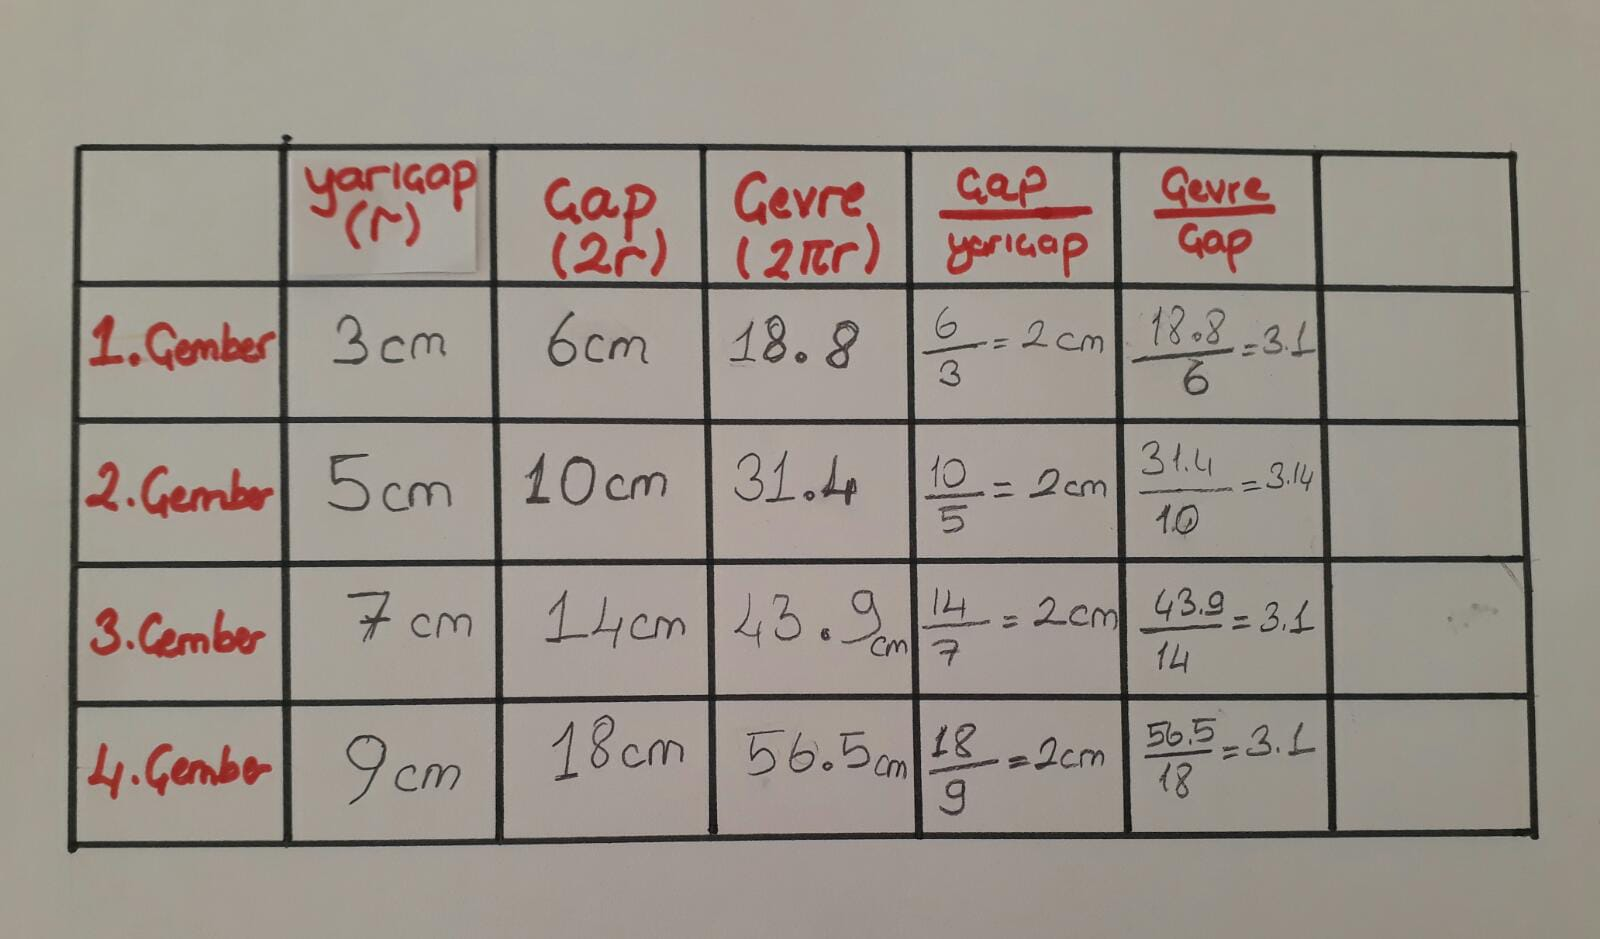 yarıçap
(r)
Çap
(2r)
Çevre
(2πr)
Çap
yarıçap
Çevre
Çap
1. Çember
3cm
6cm
18.8
6
3
= 2 cm
18.8
6
=3.1
2. Çember
5cm
10cm
31.4
10
5
= 2cm
31.4
10
=3.14
3. Çember
7 cm
14cm
43.9
cm
14
7
= 2cm
43.9
14
=3.1
4. Çember
9cm
18cm
56.5cm
18
9
=2cm
56.5
18
=3.1